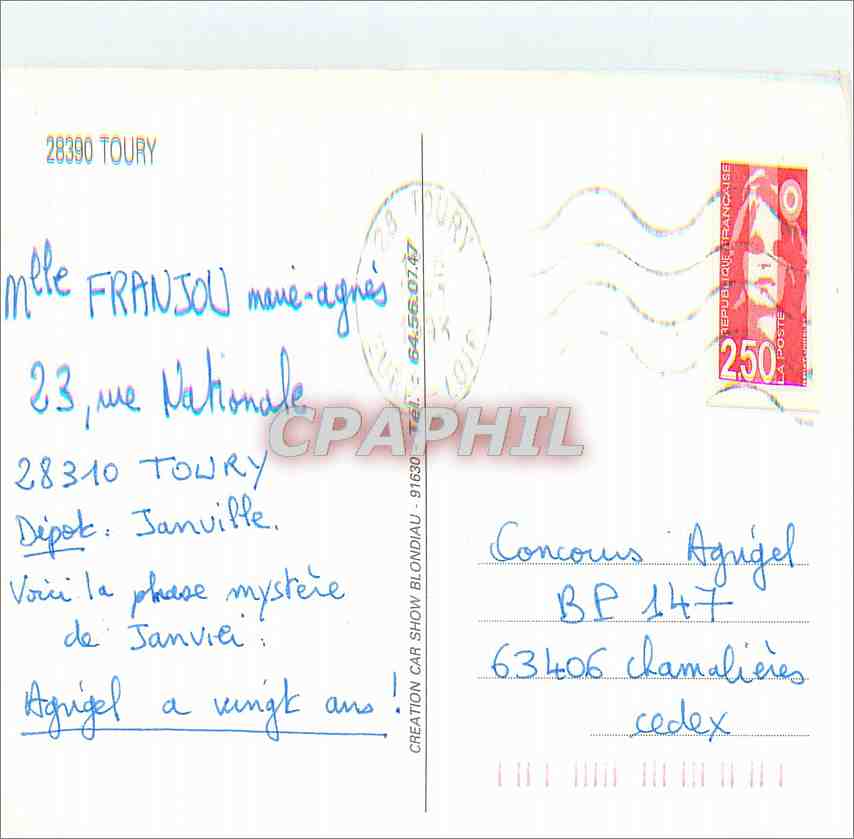 28390 TOURY
Mlle FRANJOU marie-agnès
23, rue Nationale
28310 TOURY
Dépot : Janville.
Voici la phase mystère
de Janvier :
Agrigel a vingt ans !
CREATION CAR SHOW BLONDIAU - 91630 - Tél. : 64.56.07.47
28 TOURY
REPUBLIQUE FRANÇAISE
2,50
LA POSTE
CPAPHIL
Concours Agrigel
BP 147
63406 Chamalières
cedex